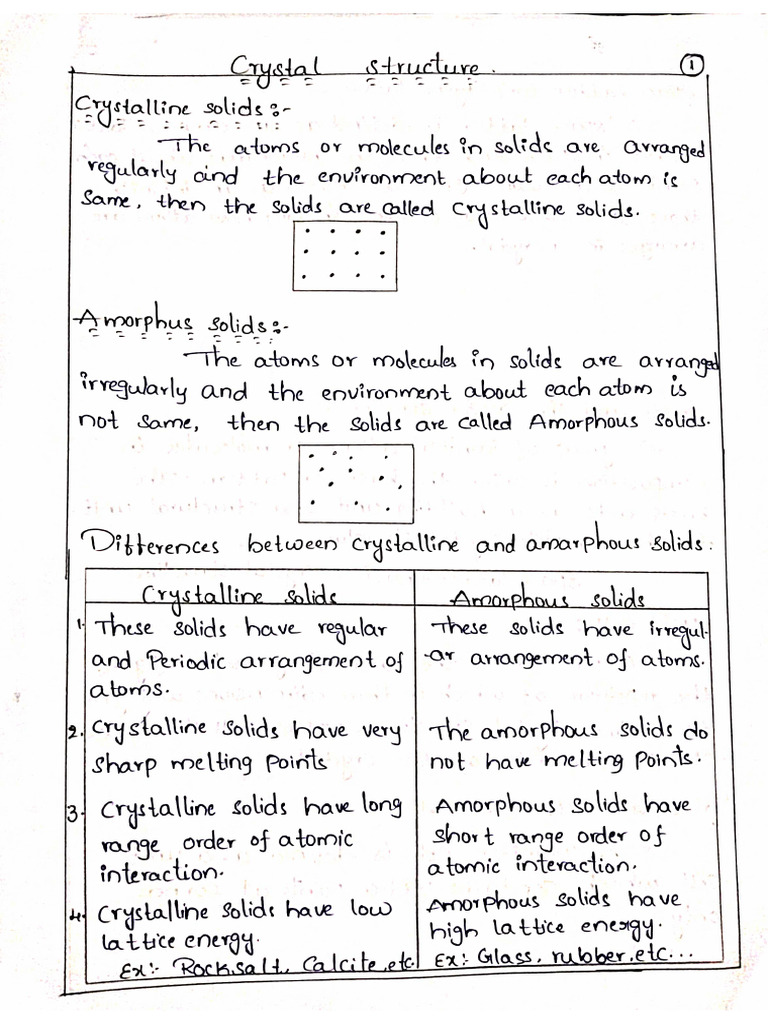 Crystal structure.
1
Crystalline solids:-
The atoms or molecules in solids are arranged
regularly and the environment about each atom is
same, then the solids are called crystalline solids.
Amorphus solids:-
The atoms or molecules in solids are arranged
irregularly and the environment about each atom is
not same, then the solids are called Amorphous solids.
Differences between crystalline and amarphous solids.
Crystalline solids
Amorphous solids
1. These solids have regular
and Periodic arrangement of
atoms.
These solids have irregul-
-ar arrangement of atoms.
2. Crystalline solids have very
sharp melting Points
The amorphous solids do
not have melting Points.
3. Crystalline solids have long
range order of atomic
interaction.
Amorphous solids have
short range order of
atomic interaction.
4. Crystalline solids have low
lattice energy.
Ex:- Rock salt, Calcite, etc.
Amorphous solids have
high lattice energy.
Ex:- Glass, rubber, etc...